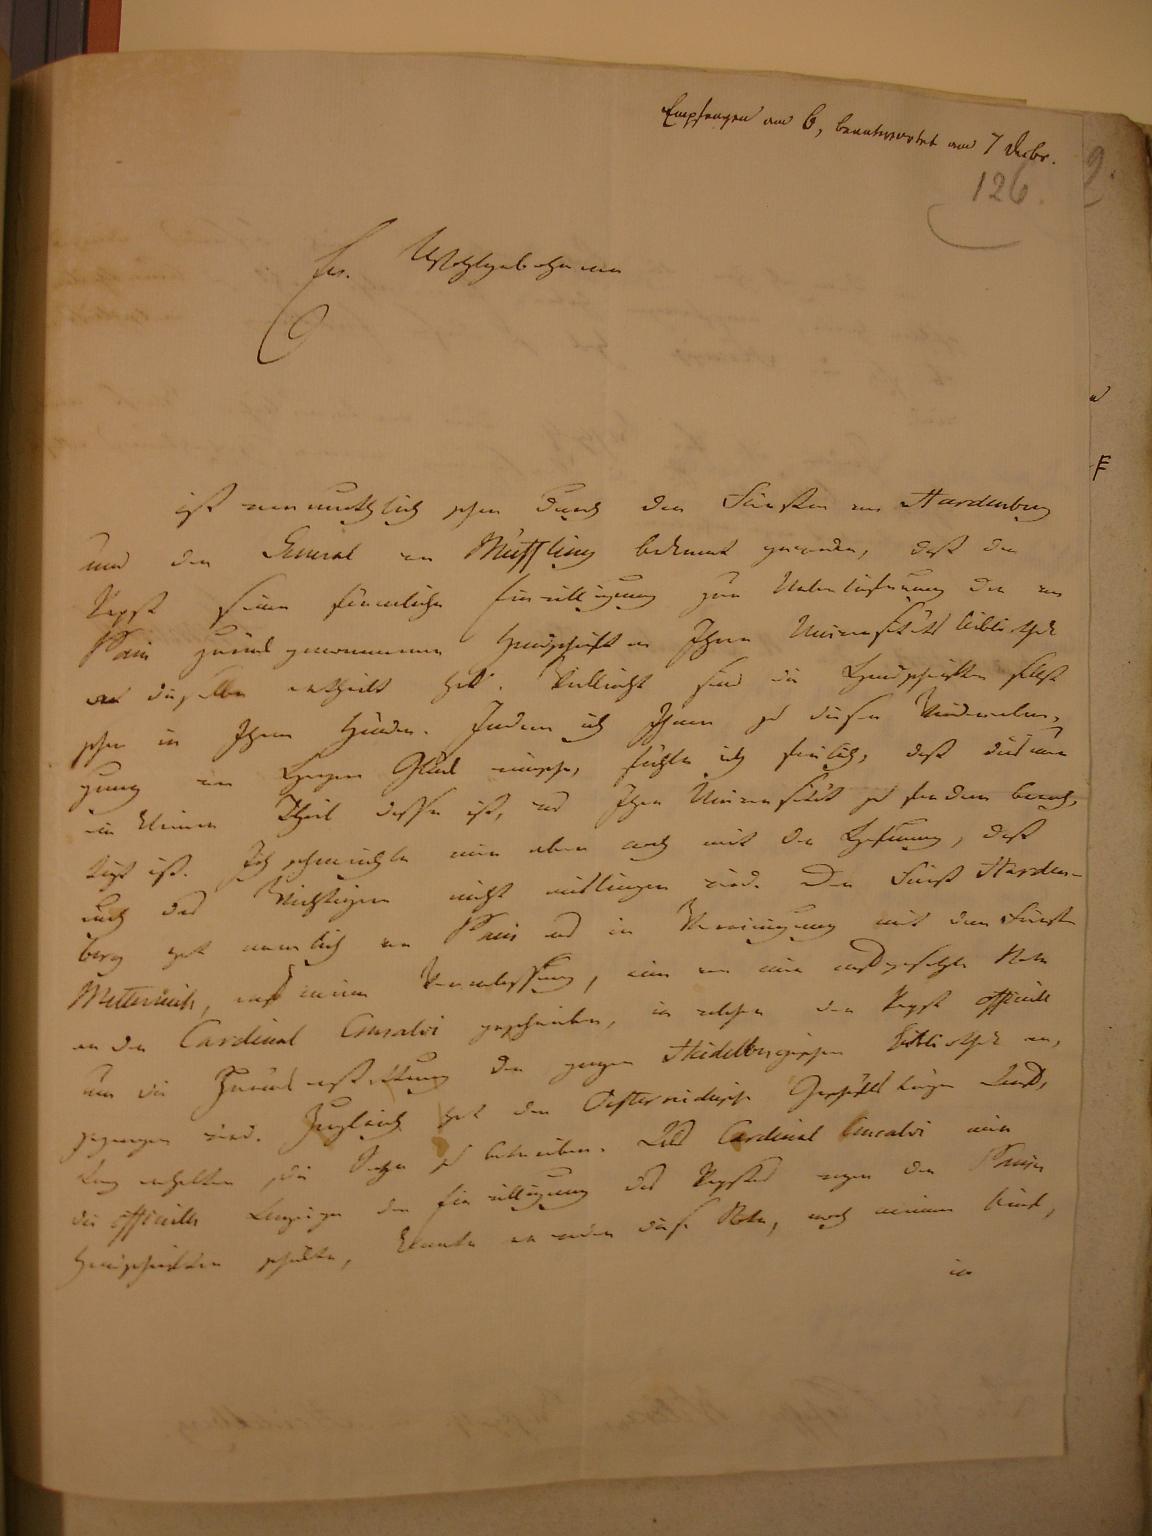 Empfangen am 6, beantwortet am 7 Decbr.
126.
Ew. Wohlgebohren
ist vermuthlich schon durch den Fürsten von Hardenberg
und den General von Müffling bekannt geworden, daß der
Papst seine förmliche Einwilligung zur Ueberlieferung der von
Paris zurückgenommenen Handschriften Ihrer Universitätsbibliothek
an dieselbe ertheilt hat. Vielleicht sind die Handschriften selbst
schon in Ihren Händen. Indem ich Ihnen zu dieser Wiedererlan-
gung von Herzen Glück wünsche, fühle ich freilich, daß dies nur
ein kleiner Theil dessen ist, was Ihre Universität zu fordern berech-
tigt ist. Ich schmeichle mir aber auch mit der Hoffnung, daß
auch das Wichtigere nicht mislingen wird. Der Fürst Harden-
berg hat nemlich von Paris aus in Vereinigung mit dem Fürsten
Metternich, auf meine Veranlassung, eine von mir aufgesetzte Note
an den Cardinal Consalvi geschrieben, in welcher der Papst officiell
um die Zurückerstattung der ganzen Heidelbergischen Bibliothek an-
gegangen wird. Zugleich hat der Oesterreichische Geschäftsträger
erhalten, die Sache zu betreiben. Als Cardinal Consalvi mir
die officielle Anzeige der Einwilligung des Papstes wegen der Pariser
Handschriften schickte, kannte er weder diese Note, noch meinen Brief,
in